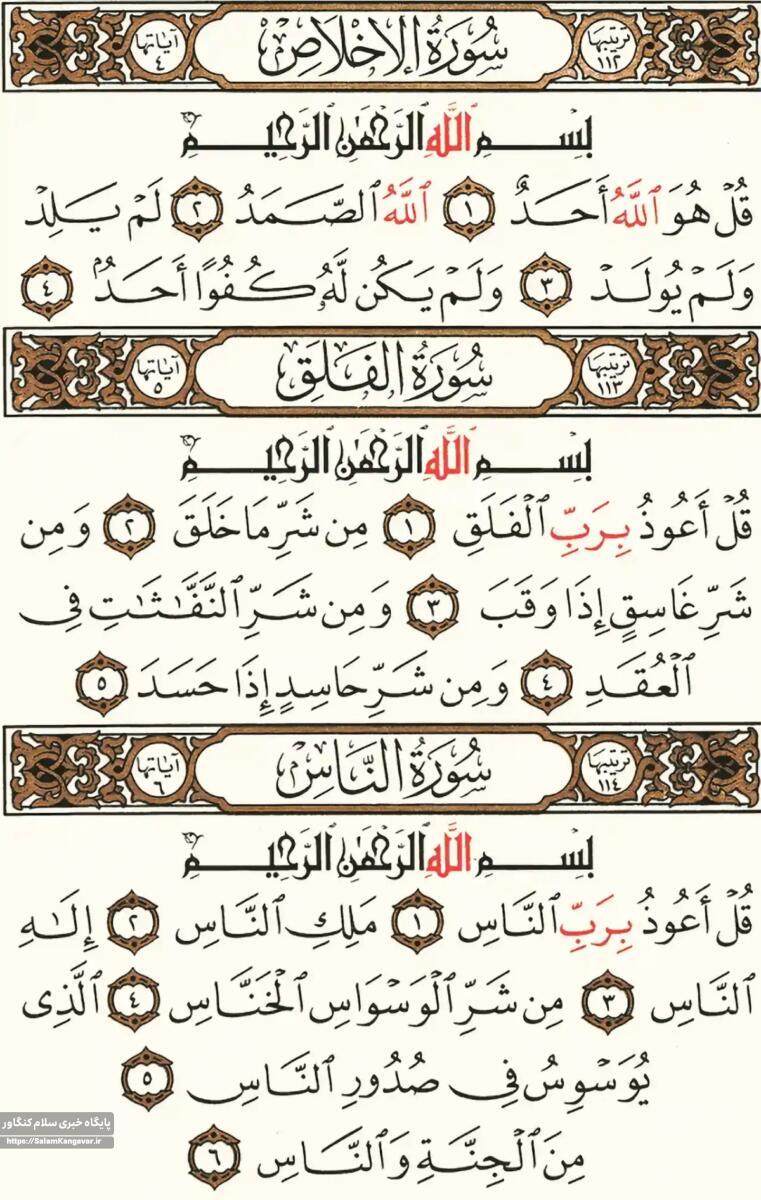 ترتيبها ١١٢ سُورَةُ الإِخْلَاصِ آياتها ٤
بِسْمِ ٱللَّهِ ٱلرَّحْمَٰنِ ٱلرَّحِيمِ
قُلْ هُوَ ٱللَّهُ أَحَدٌ ١ ٱللَّهُ ٱلصَّمَدُ ٢ لَمْ يَلِدْ
وَلَمْ يُولَدْ ٣ وَلَمْ يَكُن لَّهُۥ كُفُوًا أَحَدٌۢ ٤
ترتيبها ١١٣ سُورَةُ الفَلَقِ آياتها ٥
بِسْمِ ٱللَّهِ ٱلرَّحْمَٰنِ ٱلرَّحِيمِ
قُلْ أَعُوذُ بِرَبِّ ٱلْفَلَقِ ١ مِن شَرِّ مَا خَلَقَ ٢ وَمِن
شَرِّ غَاسِقٍ إِذَا وَقَبَ ٣ وَمِن شَرِّ ٱلنَّفَّٰثَٰتِ فِى
ٱلْعُقَدِ ٤ وَمِن شَرِّ حَاسِدٍ إِذَا حَسَدَ ٥
ترتيبها ١١٤ سُورَةُ النَّاسِ آياتها ٦
بِسْمِ ٱللَّهِ ٱلرَّحْمَٰنِ ٱلرَّحِيمِ
قُلْ أَعُوذُ بِرَبِّ ٱلنَّاسِ ١ مَلِكِ ٱلنَّاسِ ٢ إِلَٰهِ
ٱلنَّاسِ ٣ مِن شَرِّ ٱلْوَسْوَاسِ ٱلْخَنَّاسِ ٤ ٱلَّذِى
يُوَسْوِسُ فِى صُدُورِ ٱلنَّاسِ ٥
پایگاه خبری سلام کنگاور
https://SalamKangavar.ir
مِنَ ٱلْجِنَّةِ وَٱلنَّاسِ ٦